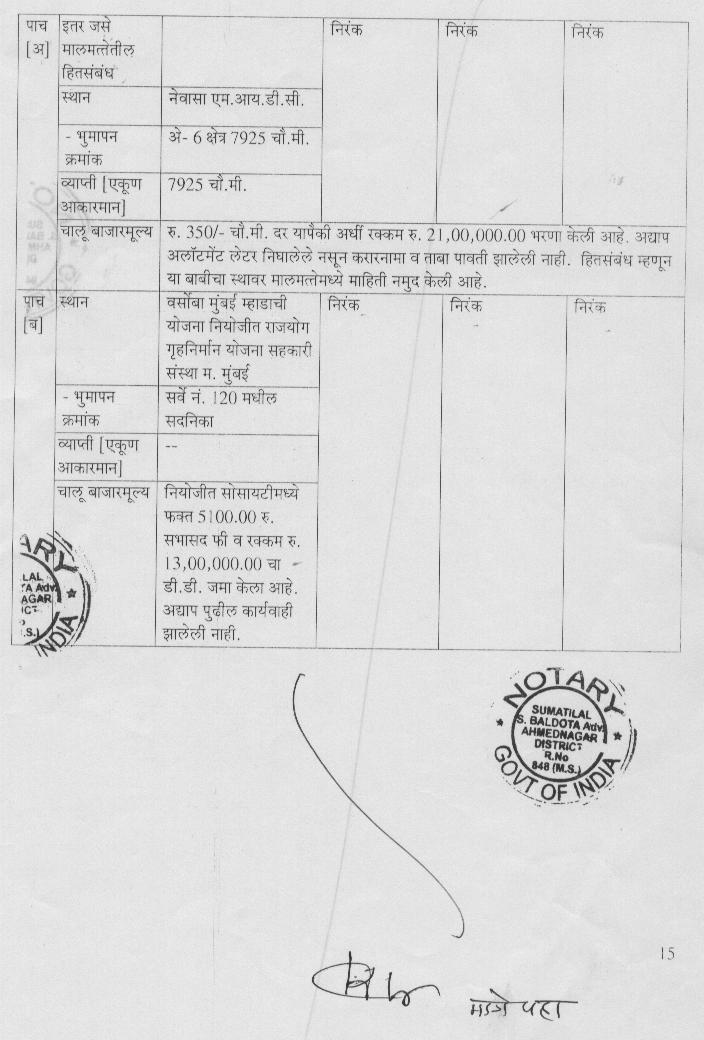 पाच इतर जसे निरंक निरंक निरंक
[अ] मालमत्तेतील
हितसंबंध
स्थान नेवासा एम.आय.डी.सी.
- भुमापन अे- 6 क्षेत्र 7925 चौ.मी.
क्रमांक
व्याप्ती [एकूण 7925 चौ.मी.
आकारमान]
चालू बाजारमूल्य रु. 350/- चौ.मी. दर यापैकी अर्धी रक्कम रु. 21,00,000.00 भरणा केली आहे. अद्याप
अलॉटमेंट लेटर निघालेले नसून करारनामा व ताबा पावती झालेली नाही. हितसंबंध म्हणून
या बाबीचा स्थावर मालमत्तेमध्ये माहिती नमुद केली आहे.
पाच स्थान वर्सोबा मुंबई म्हाडाची निरंक निरंक निरंक
[ब] योजना नियोजीत राजयोग
गृहनिर्मान योजना सहकारी
संस्था म. मुंबई
- भुमापन सर्वे नं. 120 मधील
क्रमांक सदनिका
व्याप्ती [एकूण --
आकारमान]
चालू बाजारमूल्य नियोजीत सोसायटीमध्ये
फक्त 5100.00 रु.
सभासद फी व रक्कम रु.
13,00,000.00 चा
डी.डी. जमा केला आहे.
अद्याप पुढील कार्यवाही
झालेली नाही.
ARY
LAL
TA Adv.
AGAR
ICT
.S.)
INDIA
NOTARY
SUMATILAL
S. BALDOTA Adv.
AHMEDNAGAR
DISTRICT
R.No
848 (M.S.)
GOVT OF INDIA
15
मागे पहा